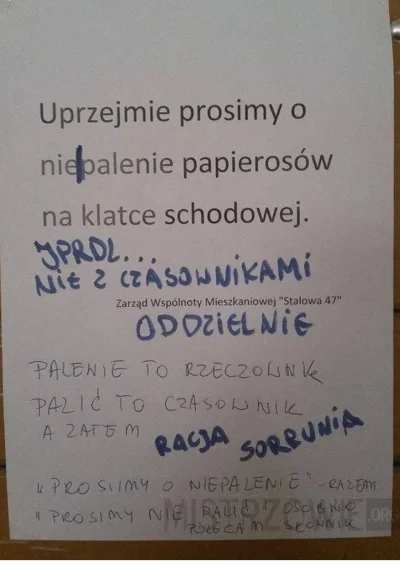 Uprzejmie prosimy o
nie|palenie papierosów
na klatce schodowej.
JPRDL...
NIE Z CZASOWNIKAMI
Zarząd Wspólnoty Mieszkaniowej "Stalowa 47"
ODDZIELNIE
PALENIE TO RZECZOWNIK
PALIĆ TO CZASOWNIK
A ZATEM
RACJA SORRUNIA
"PROSIMY O NIEPALENIE" - RAZEM
"PROSIMY NIE PALIĆ OSOBNO
POLECAM SŁOWNIK
MISTRZOWIE.ORG